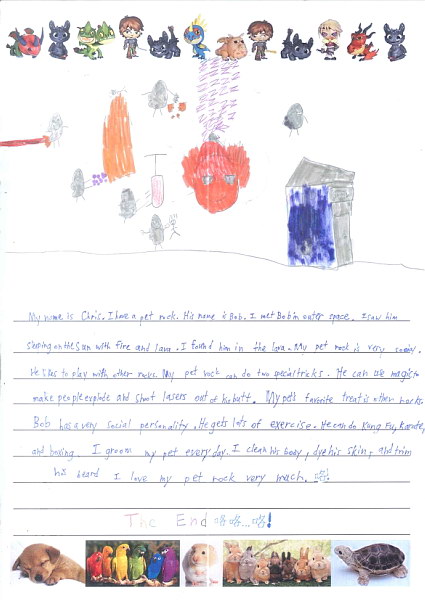 My name is Chris. I have a pet rock. His name is Bob. I met Bob in outer space. I saw him
sleeping on the sun with fire and lava. I found him in the lava. My pet rock is very
He likes to play with other rocks. My pet rock can do two special tricks. He can use magic to
make people explode and shoot lasers out of his butt. My pets favorite treat is other rocks.
Bob has a very social personality. He gets lots of exercise. He can do Kung Fu, Karate,
and boxing. I groom my pet every day. I clean his body, dye his skin, and trim
his beard I love my pet rock very much.
The End 咯咯...咯!